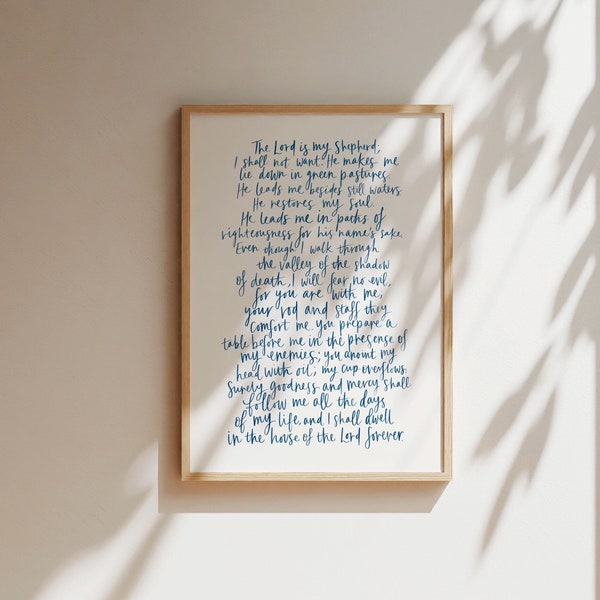 The Lord is my Shepherd;
I shall not want. He makes me
lie down in green pastures.
He leads me besides still waters
He restores my soul.
He leads me in paths of
righteousness for his name's sake.
Even though I walk through
the valley of the shadow
of death, I will fear no evil,
for you are with me;
your rod and staff they
comfort me. you prepare a
table before me in the presence of
my enemies; you anoint my
head with oil; my cup overflows.
Surely goodness and mercy shall
follow me all the days
of my life, and I shall dwell
in the house of the Lord forever.